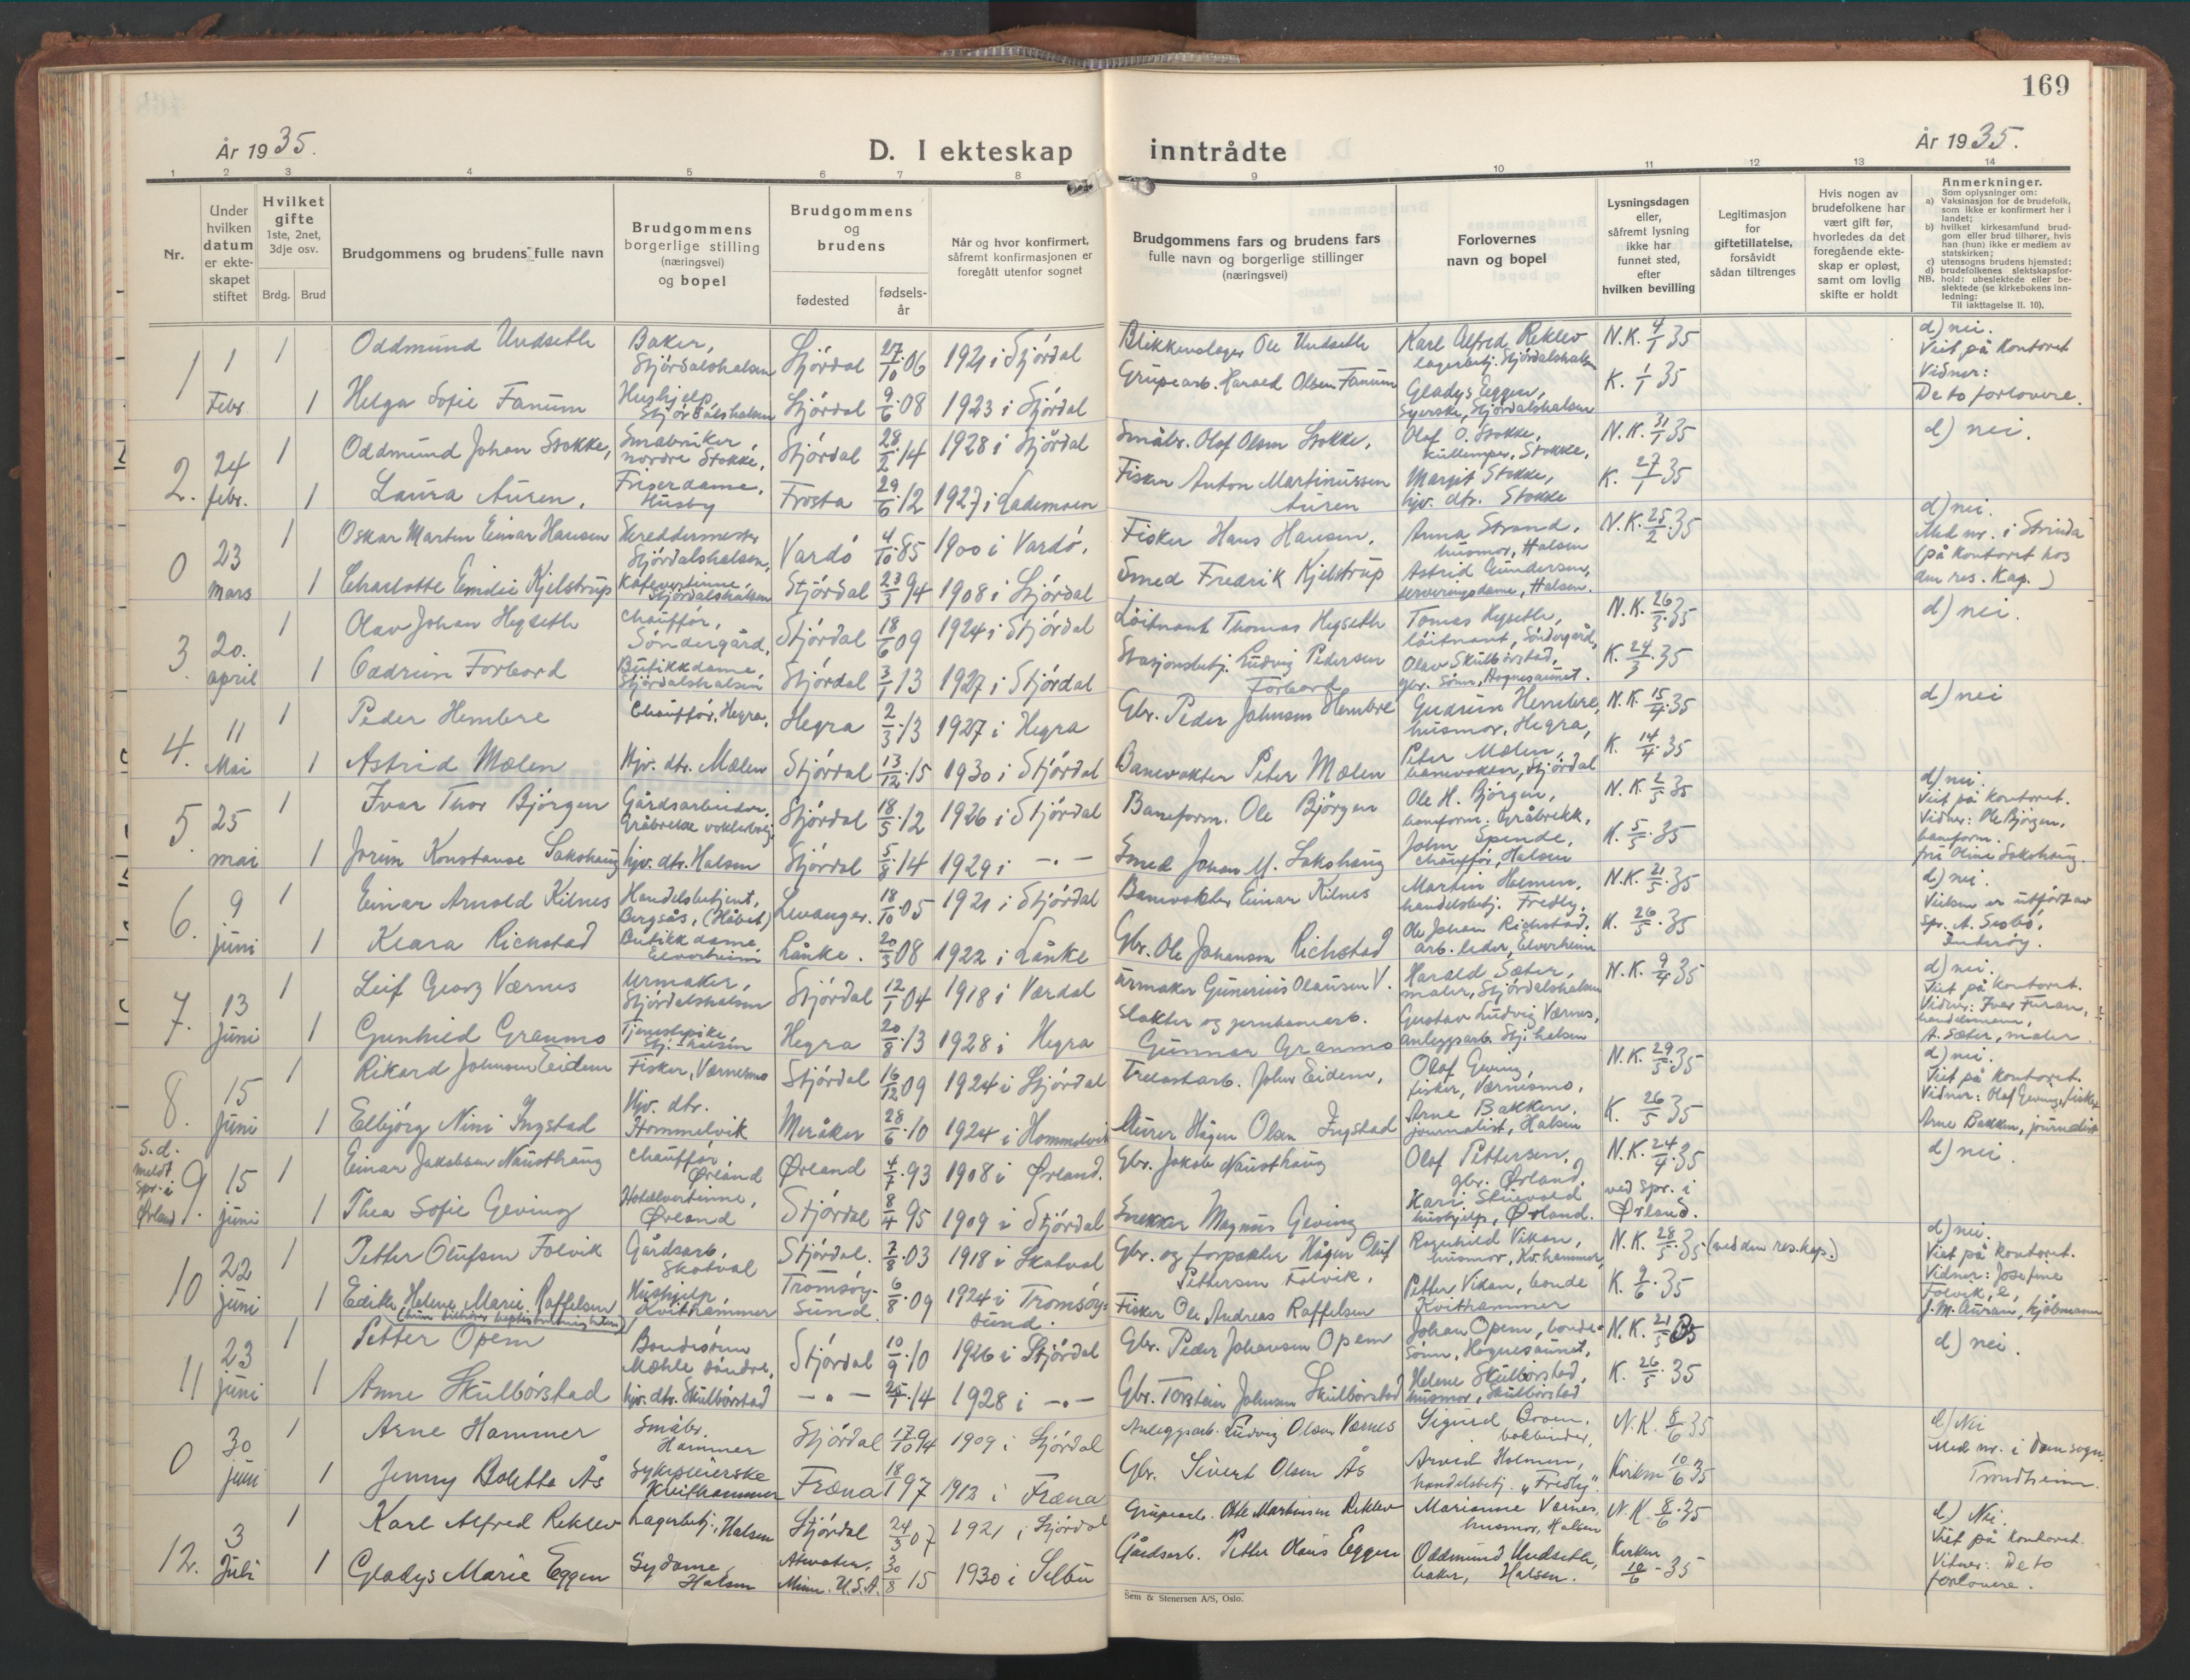 169
År 1935.
D. I ekteskap inntrådte
År 1935.
1 2 3 4 5 6 7 8 9 10 11 12 13 14
Nr.
Under hvilken datum er ekteskapet stiftet
Hvilket gifte 1ste, 2net, 3dje osv.
Brdg. Brud
Brudgommens og brudens fulle navn
Brudgommens borgerlige stilling (næringsvei) og bopel
Brudgommens og brudens
fødested
fødselsår
Når og hvor konfirmert, såfremt konfirmasjonen er foregått utenfor sognet
Brudgommens fars og brudens fars fulle navn og borgerlige stillinger (næringsvei)
Forlovernes navn og bopel
Lysningsdagen eller, såfremt lysning ikke har funnet sted, efter hvilken bevilling
Legitimasjon for giftetillatelse, forsåvidt sådan tiltrenges
Hvis nogen av brudefolkene har vært gift før, hvorledes da det foregående ekteskap er opløst, samt om lovlig skifte er holdt
Anmerkninger.
Som oplysninger om:
a) Vaksinasjon for de brudefolk, som ikke er konfirmert her i landet;
b) hvilket kirkesamfund brudgom eller brud tilhører, hvis han (hun) ikke er medlem av statskirken;
c) utensogns brudens hjemsted;
d) brudefolkenes slektskapsforhold: ubeslektede eller beslektede (se kirkebokens innledning:
NB.
Til iakttagelse II. 10).
1 1 Febr. 1 Oddmund Undseth Baker, Stjørdalshalsen Stjørdal 27/10 06 1921 i Stjørdal Blikkenslager Ole Undseth Karl Alfred Reklev lagerbetj. Stjørdalshalsen N.K. 4/1 35 d) nei. Viet på kontoret
1 Helga Sofie Fanum Hushjelp Stjørdalshalsen Stjørdal 9/6 08 1923 i Stjørdal Grupearb. Harald Olsen Fanum Gladys Eggen, Syerske, Stjørdalshalsen K. 1/1 35 Vidner: De to forlovere.
2. 24 febr. 1 Oddmund Johan Stokke, Småbruker, nordre Stokke, Stjørdal 28/2 14 1928 i Stjørdal Småbr. Olof Olsen Stokke, Olaf O. Stokke, Stokke, N.K. 31/1 35 d) nei.
1 Laura Auren, Friserdame, Husby Frosta 29/6 12 1927 i Lademoen Fisker Anton Martinussen Auren Margit Stokke, hjv. dtr. Stokke K. 27/1 35
0 23 mars 1 Oskar Martin Einar Hansen Skreddermester Stjørdalshalsen, Vardø 4/10 85 1900 i Vardø, Fisker Hans Hansen, Anna Strand, husmor, Halsen N.K. 25/2 35 d) nei. Med nr. i Strinda
1 Charlotte Emilie Kjelstrup Kafevertinne, Stjørdalshalsen Stjørdal 23/3 94 1908 i Stjørdal Smed Fredrik Kjelstrup Astrid Gundersen, serveringsdame, Halsen. (på kontoret hos den res. Kap.)
3. 20. april 1 Olav Johan Hegseth Chauffør, Søndergård, Stjørdal 18/6 09 1924 i Stjørdal Løitnant Thomas Hegseth Tomas Hegseth, løitnant, Søndergård, N.K. 26/3 35 d) nei.
1 Oddrun Forbord Butikkdame Stjørdalshalsen Stjørdal 3/1 13 1927 i Stjørdal Stasjonsbetj. Ludvig Pedersen Forbord Olav Skulbørstad, gbr. sønn, Hognesaunet. K. 24/3 35
4. 11 Mai 1 Peder Hembre Chauffør, Hegra, Hegra 2/3 13 1927 i Hegra Gbr. Peder Johnsen Hembre Gudrun Hembre, husmor, Hegra, N.K. 15/4 35 d) nei
1 Astrid Mælen Hjv. dtr. Mælen Stjørdal 13/12 15 1930 i Stjørdal Banevokter Peter Mælen Peter Mælen, banevokter, Stjørdal K. 14/4 35
5. 25 mai 1 Ivar Thor Bjørgen Gårdsarbeider, Gråbrekk Stjørdal 18/5 12 1926 i Stjørdal Baneform. Ole Bjørgen Ole H. Bjørgen, baneform. Gråbrekk, N.K. 2/5 35 d) nei. Viet på kontoret. Vidner: Ole Bjørgen, baneform.
1 Jorun Konstanse Sakshaug hjv. dtr. Halsen Stjørdal 5/8 14 1929 i -"- Smed Johan M. Sakshaug John Spende, Chauffør, Halsen K. 5/5 35 fru Oline Sakshaug.
6. 9 juni 1 Einar Arnold Kilnes Handelsbetjent, Bergsås, (Håbet) Levanger. 18/10 05 1921 i Stjørdal Banevokter Einar Kilnes Martin Holmen, handelsbetj. Fredly. N.K. 21/5 35 d) nei. Vielsen er utført av
1 Klara Richstad Butikkdame Elverheim Lånke. 20/3 08 1922 i Lånke Gbr. Ole Johansen Richstad Ole Johan Richstad, arb. leder, Elverheim K. 26/5 35 spr. A. Inderøy.
7. 13 Juni 1 Leif Georg Værnes Urmaker, Stjørdalshalsen Stjørdal 12/1 04 1918 i Værdal Urmaker Gunerius Olausen V. Harald Sæter, maler, Stjørdalshalsen N.K. 9/4 35 d) nei. Viet på kontoret. Vidner: Ivar Furan, handelsmann,
1 Gunhild Granmo Tjenestepike Stj.-halsen Hegra 20/8 13 1928 i Hegra Slakter og jernbanearb. Gunnar Granmo Gustav Ludvig Værnes, anleggsarb. Stj. halsen A. Sæter, maler.
8. 15 Juni 1 Rikard Johnsen Eidem Fisker, Værnesmo Stjørdal 16/12 09 1924 i Stjørdal Trelastarb. John Eidem, Olaf Geving, fisker, Værnesmo, N.K. 29/5 35 d) nei. Viet på kontoret. Vidner: Olaf Geving, fisker
1 Elbjørg Nini Ingstad Hjv. dtr. Hommelvik Meråker 28/6 10 1924 i Hommelvik Murer Hågen Olsen Ingstad Arne Bakken, journalist, Halsen K. 26/5 35 Arne Bakken, journalist
S.d. meldt spr. i Ørland 9. 15 juni 1 Einar Jakobsen Nausthaug Chauffør, Ørland Ørland 4/7 93 1908 i Ørland. Gbr. Jakob Nausthaug Olaf Pettersen, gbr. Ørland, N.K. 24/4 35 d) nei.
1 Thea Sofie Geving Hotellvertinne, Ørland Stjørdal 8/4 95 1909 i Stjørdal Snekker Magnus Geving Kari hushjelp, Ørland. ved spr. i Ørland.
10 22 juni 1 Petter Olufsen Folvik Gårdsarb, Skatval Stjørdal. 7/8 03 1918 i Skatval Gbr. og forpakter Hågen Oluf Pettersen Folvik, Ragnhild Vikan, husmor, Kv.hammer, N.K. 28/5 35 (ved den res. kap.) d) nei. Viet på kontoret.
1 Edith Helene Marie Raffelsen Hushjelp Kvithammer Tromsøysund 6/8 09 1924 i Tromsøysund. Fisker Ole Andreas Raffelsen Petter Vikan, bonde Kvithammer K. 9/6 35 Vidner: Josefine Folvik, J.M. Auran, kjøbmann
11 23 juni 1 Petter Opem Bondesønn Mæhle søndre, Stjørdal 10/9 10 1926 i Stjørdal Gbr. Peder Johansen Opem Johan Opem, bondesønn, Hognesaunet, N.K. 21/5 35 d) nei.
1 Anne Skulbørstad hjv. dtr. Skulbørstad -"- 25/1 14 1928 i -"- Gbr. Torstein Johnsen Skulbørstad Helene Skulbørstad, husmor, Skulbørstad K. 26/5 35
0 30 juni 1 Arne Hammer Småbr. Hammer Stjørdal 17/10 94 1909 i Stjørdal Anleggsarb. Ludvig Olsen Værnes Sigurd Broen, bokbinder, N.K. 6/6 35 d) Nei Med nr. i Domsogn.
1 Jenny Bolette Ås Sykepleierske Kvithammer Fræna 18/1 97 1912 i Fræna Gbr. Sivert Olsen Ås Arvid Holmen, handelsbetj. "Fredly". Kirken 10/6 35 Trondheim.
12. 3 Juli 1 Karl Alfred Reklev Lagerbetj., Halsen Stjørdal 24/3 07 1921 i Stjørdal Grupearb. Otte Martinsen Reklev Marianne Værnes, husmor, Halsen N.K. 8/6 35 d) Nei. Viet på kontoret.
1 Gladys Marie Eggen Sydame Halsen Atwater, Minn. U.S.A. 30/8 15 1930 i Selbu Gårdsarb. Petter Olaus Eggen Oddmund Undseth, baker, Halsen. Kirken 10/6 - 35 Vitner: De to forlovere.
Sem & Stenersen A/S, Oslo.